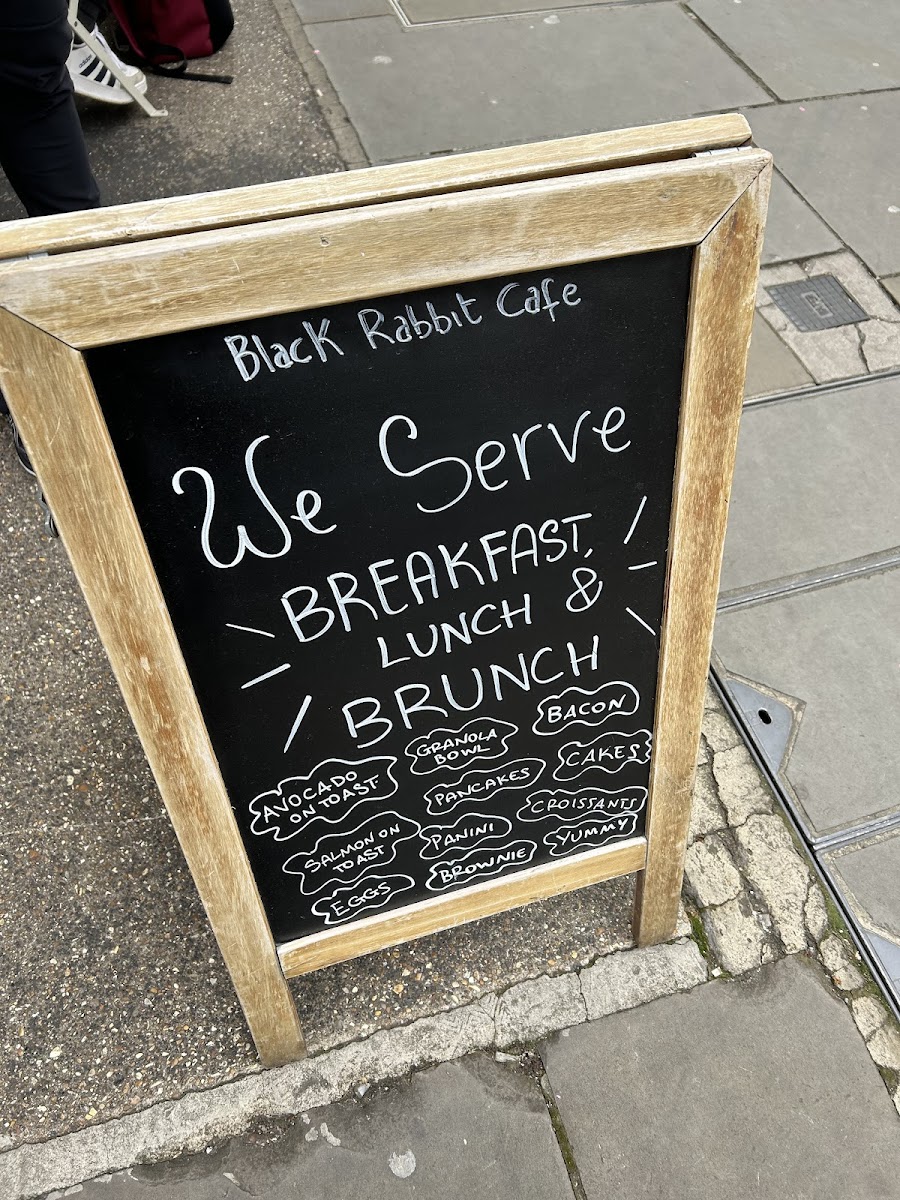 Black Rabbit Cafe
We Serve
BREAKFAST,
LUNCH &
BRUNCH
AVOCADO
ON TOAST
SALMON ON
TOAST
EGGS
GRANOLA
BOWL
PANCAKES
PANINI
BROWNIE
BACON
CAKES
CROISSANTS
YUMMY